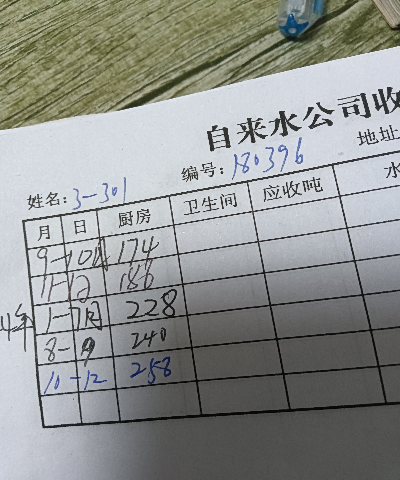 自来水公司收
姓名: 3-301 编号: 180396 地址
月 日 厨房 卫生间 应收吨 水
9-10月 174
11-12 186
4年 1-7月 228
8-9 240
10-12 258